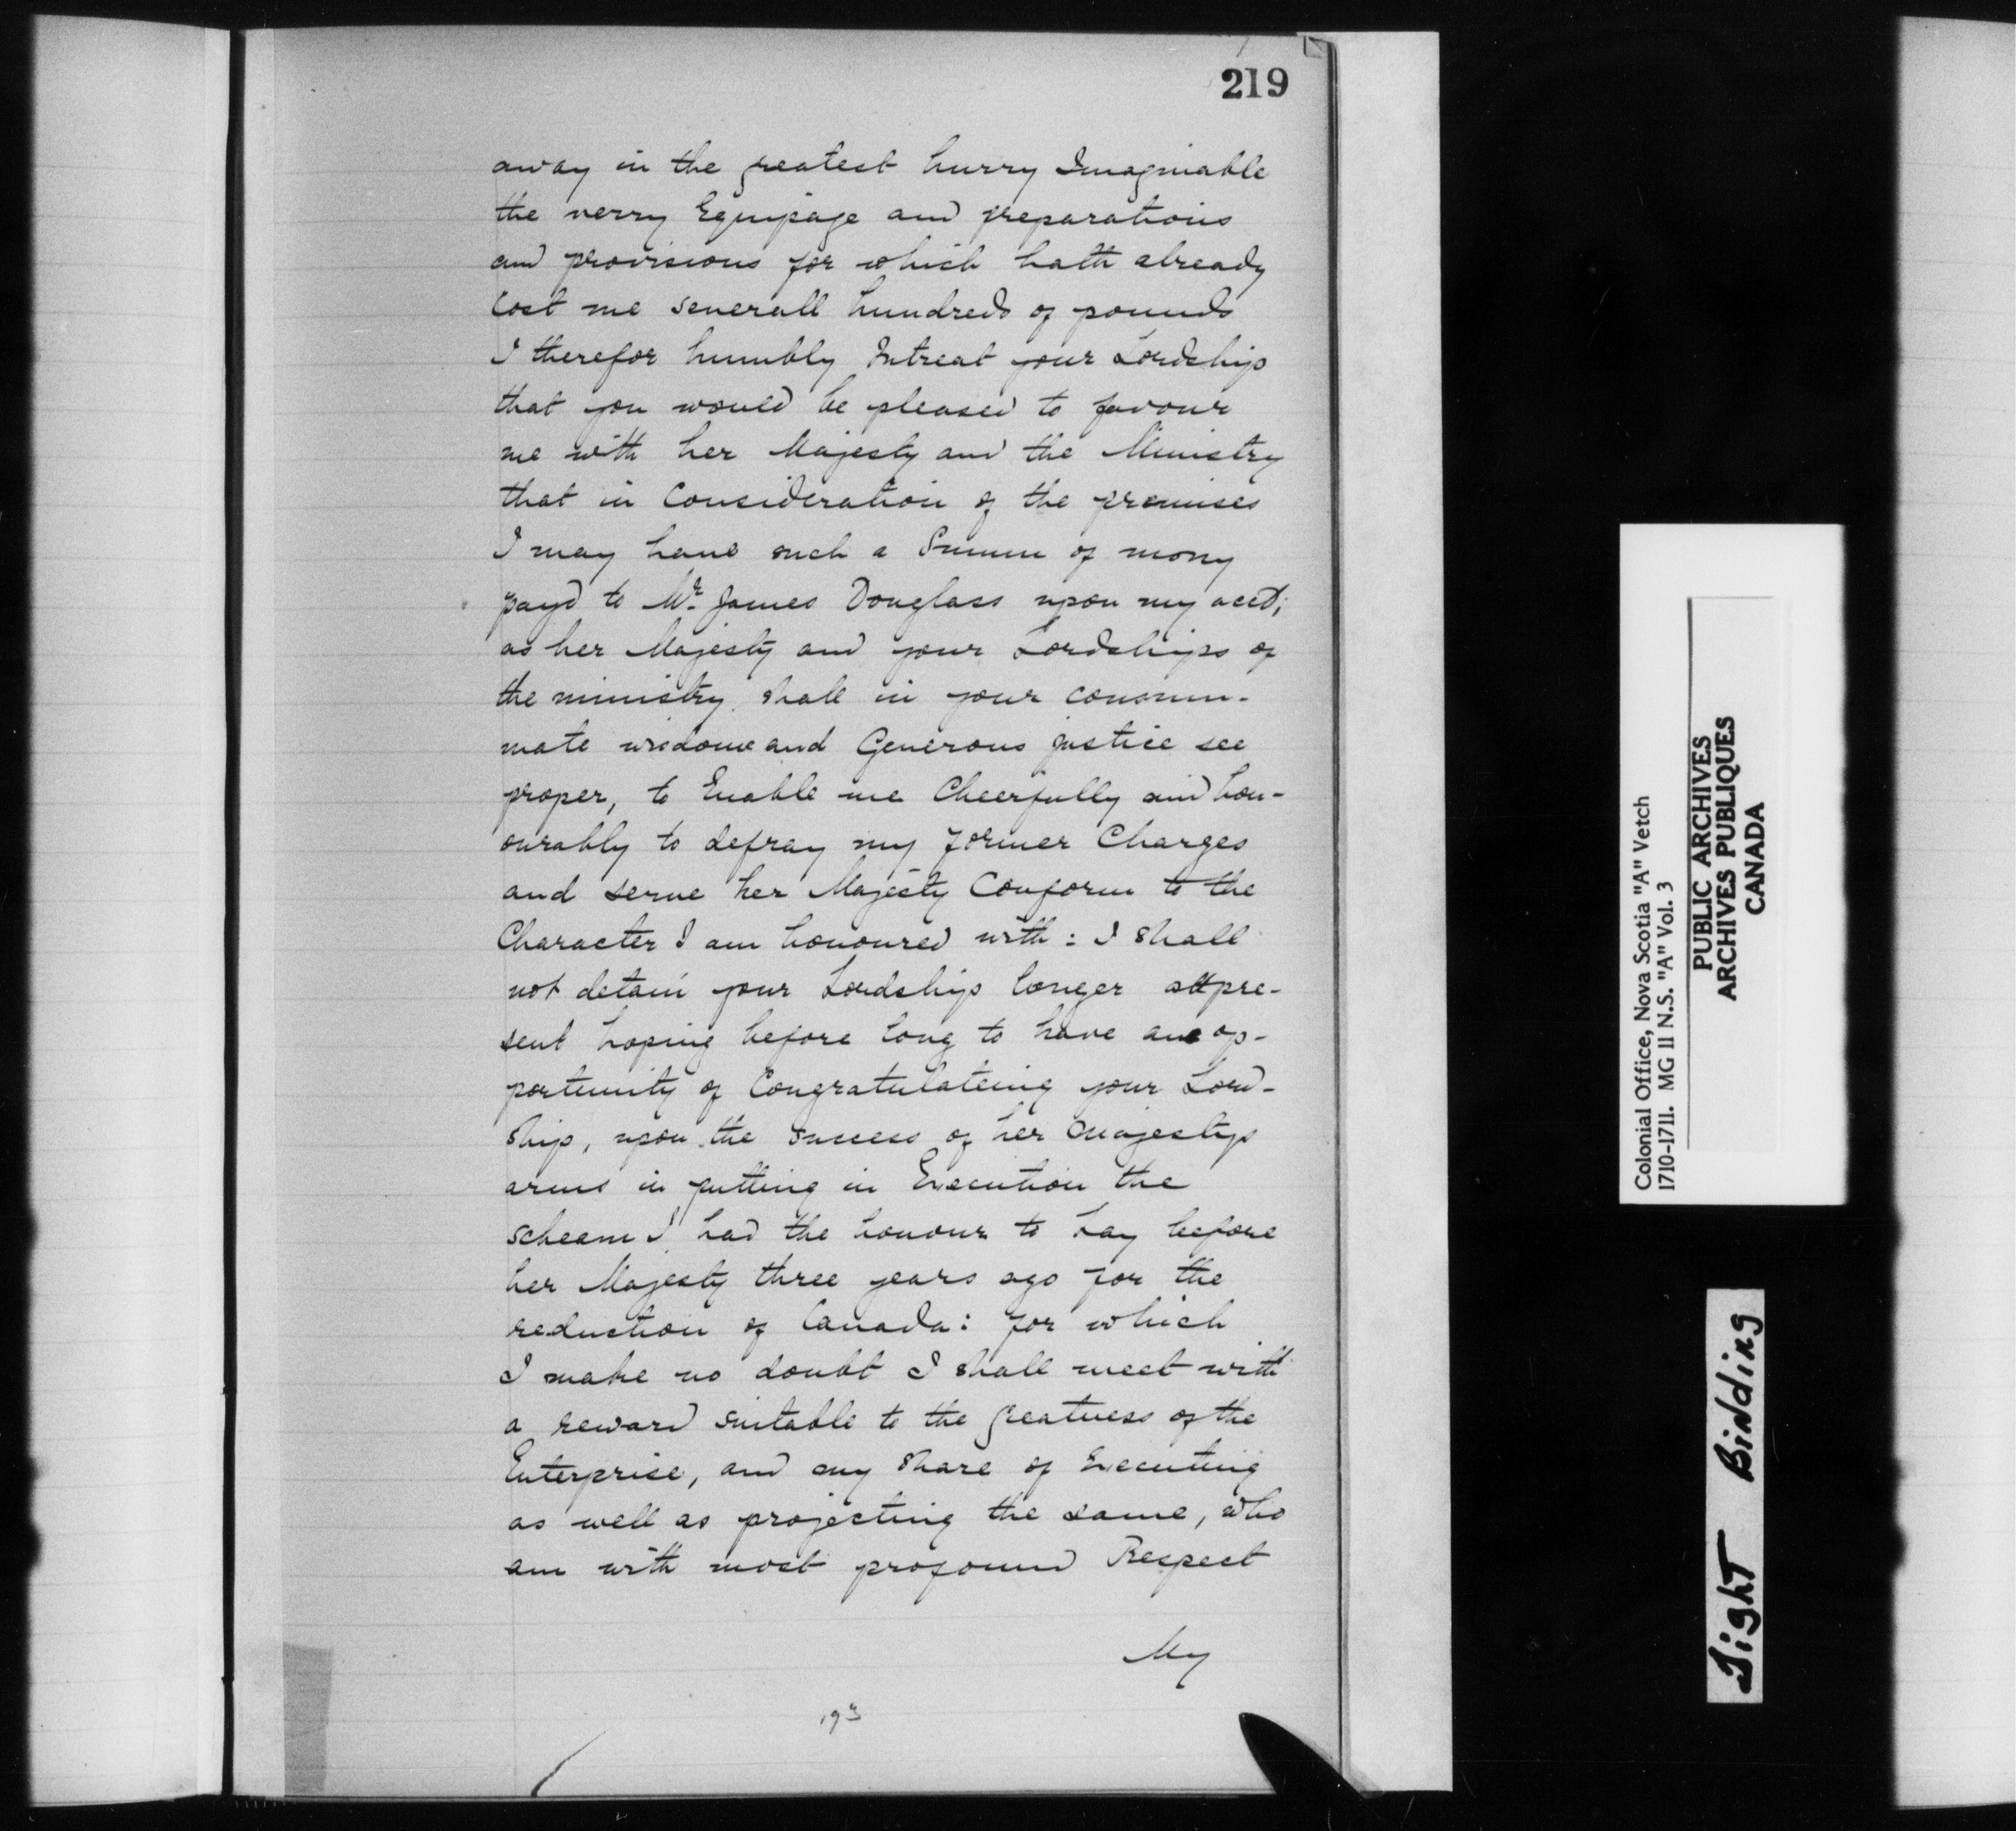 219
away in the greatest hurry Imaginable
the verry Equipage and preparations
and provisions for which hath already
Cost me severall hundreds of pounds
I therefor humbly Intreat your Lordship
that you would be pleased to favour
me with her Majesty and the Ministry
that in Consideration of the premises
I may have such a Summ of mony
payd to Mr. James Douglass upon my acct;
as her Majesty and your Lordships of
the ministry shall in your consum-
mate wisdome and Generous justice see
proper, to Enable me Cheerfully and hon-
ourably to defray my former Charges
and serve her Majesty Conform to the
Character I am honoured with: I shall
not detain your Lordship longer att pre-
sent hoping before long to have ane op-
portunity of Congratulateing your Lord-
ship, upon the Success of her Majestys
arms in putting in Execution the
scheam I had the honour to Lay before
her Majesty three years ago for the
reduction of Canada: for which
I make no doubt I shall meet with
a reward suitable to the greatness of the
Enterprise, and my Share of Executing
as well as projecting the same, who
am with most profound Respect
My
193
Colonial Office, Nova Scotia "A" Vetch
1710-1711. MG 11 N.S. "A" Vol. 3
PUBLIC ARCHIVES
ARCHIVES PUBLIQUES
CANADA
Tight Binding